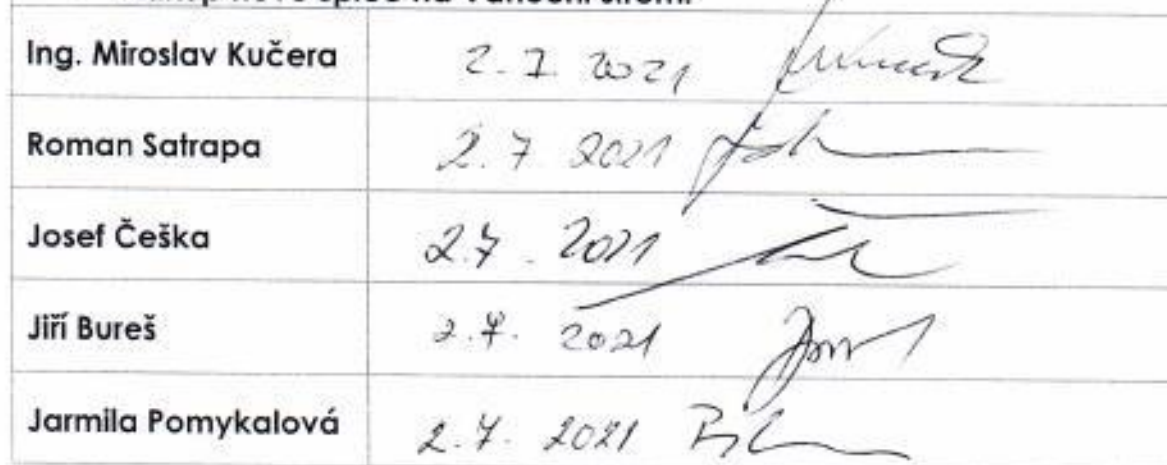 nové špice na vánoční strom.
Ing. Miroslav Kučera 2.7. 2021
Roman Satrapa 2.7 2021
Josef Češka 2.7. 2021
Jiří Bureš 2.7. 2021
Jarmila Pomykalová 2.7. 2021